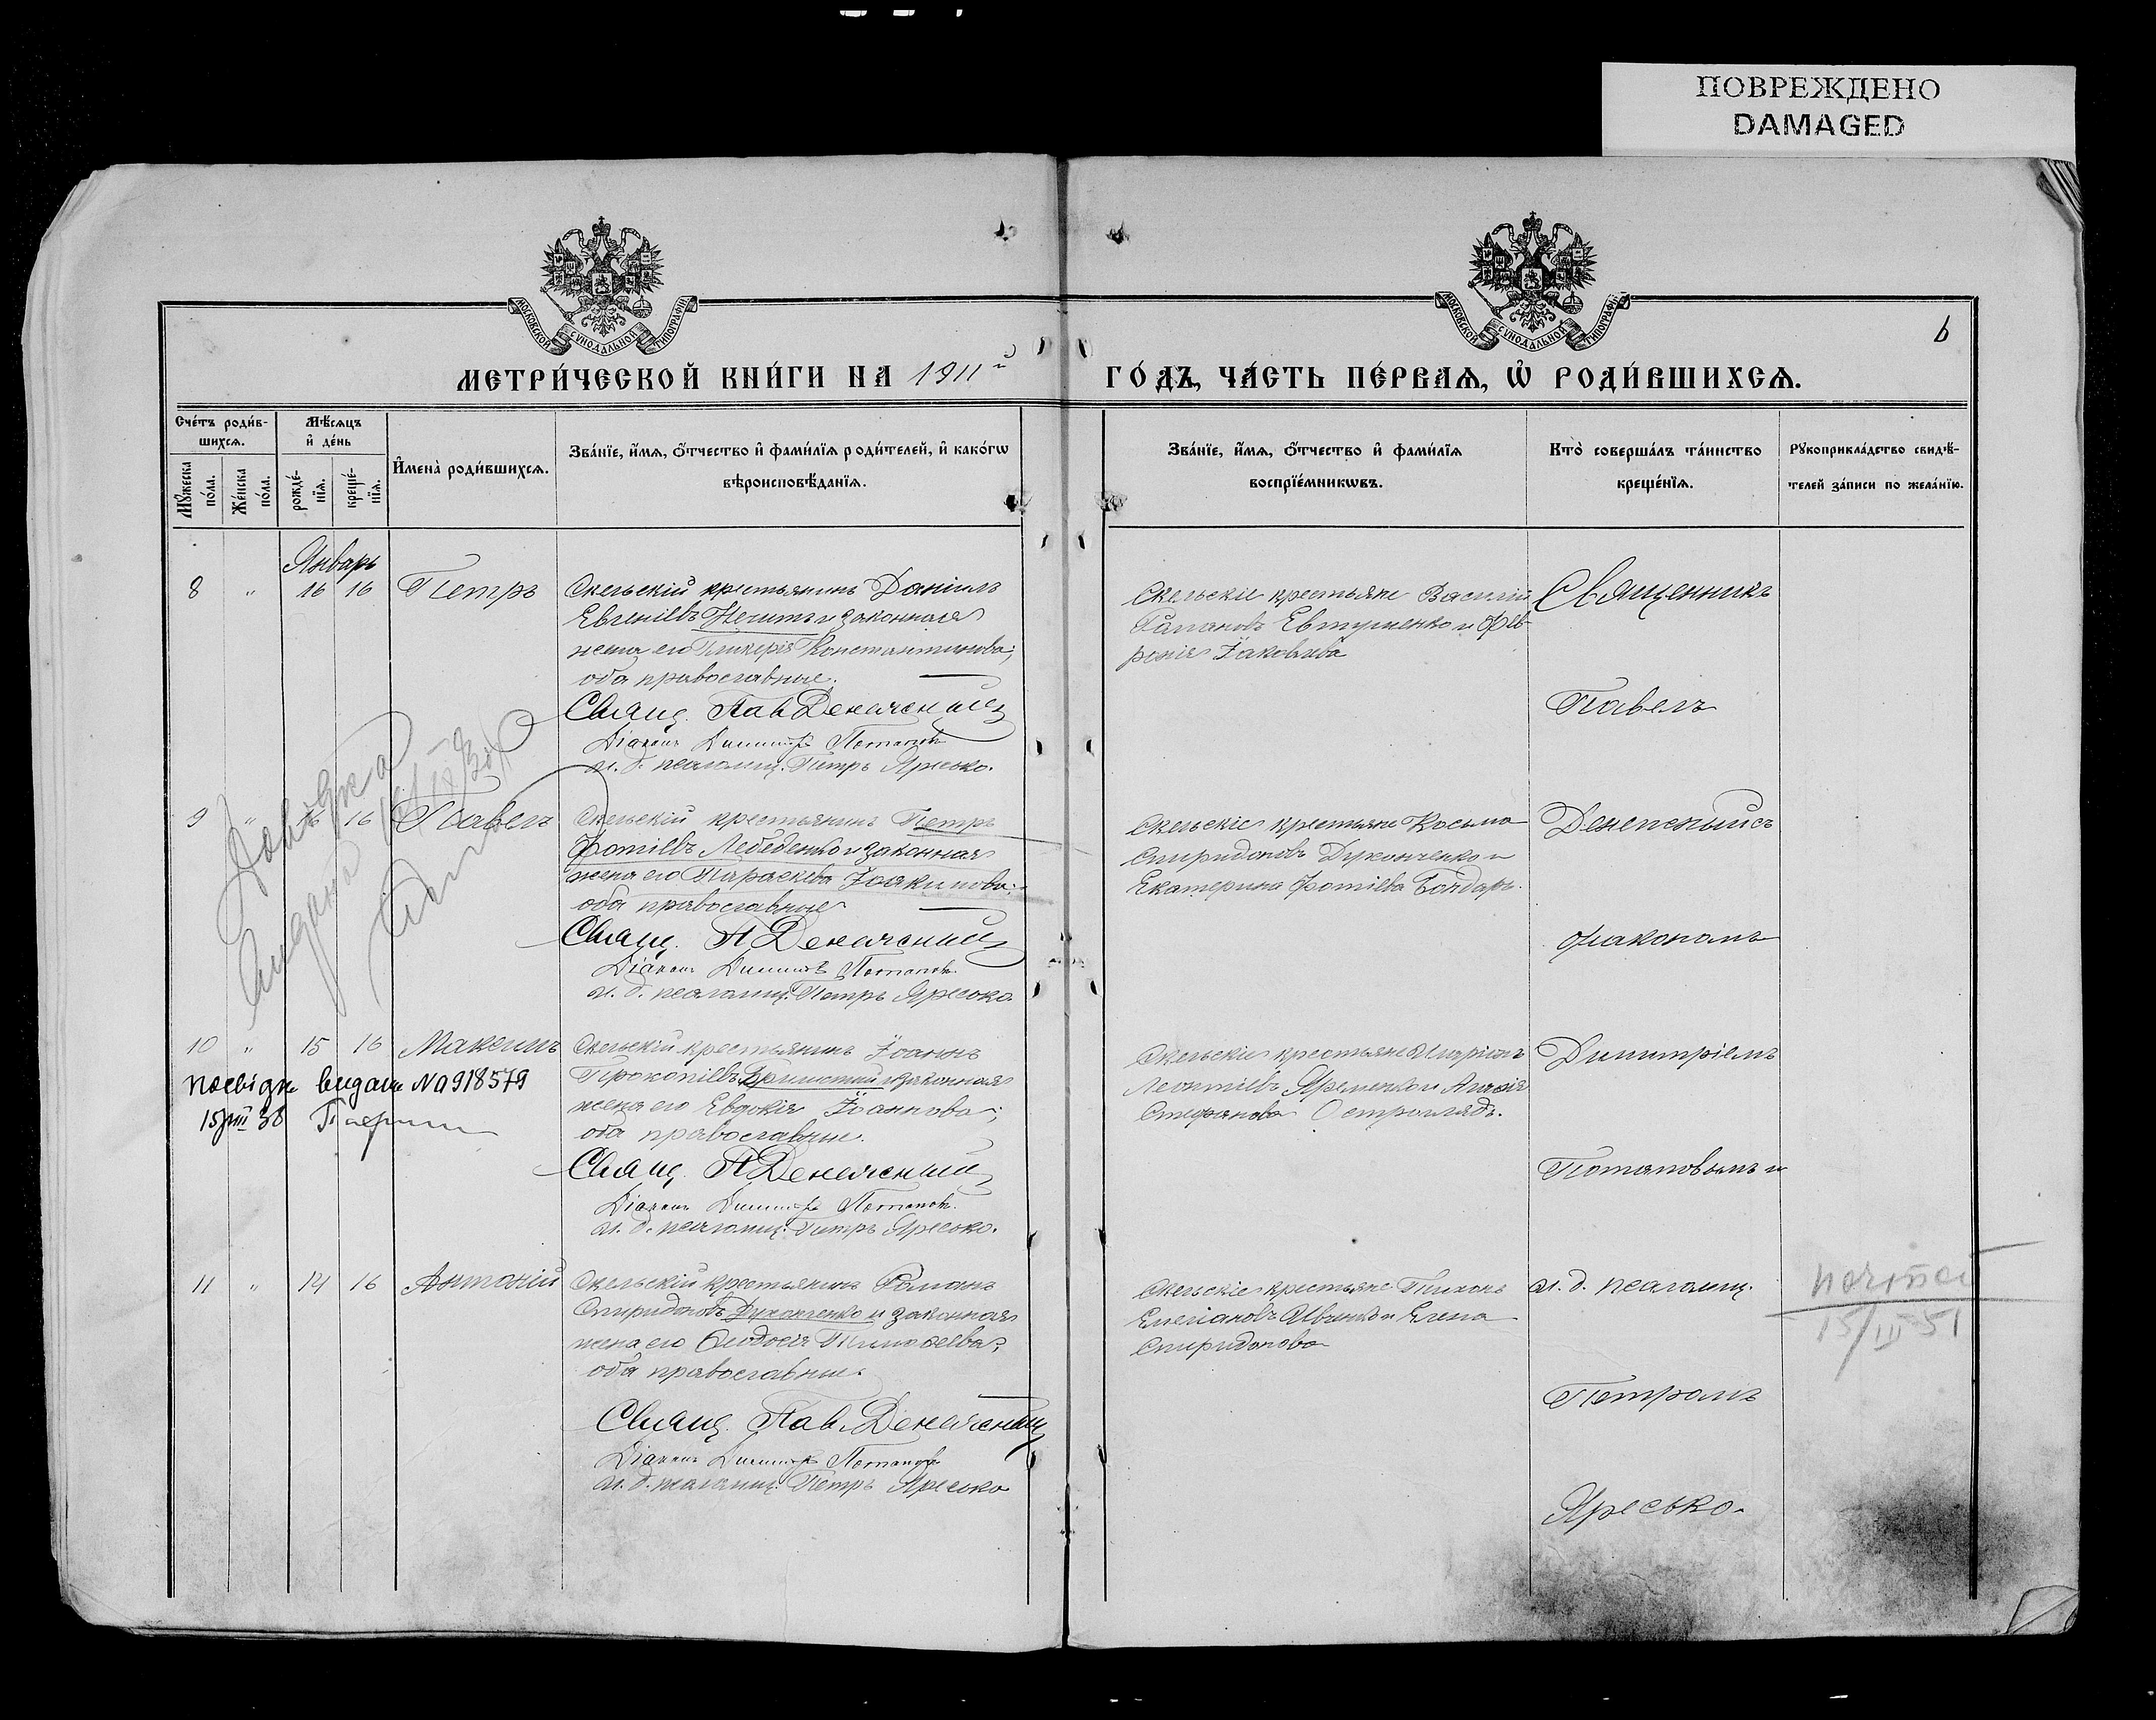 ПОВРЕЖДЕНО
DAMAGED
МОСКОВСКОЙ СѴНОДАЛЬНОЙ ТИПОГРАФІИ
МОСКОВСКОЙ СѴНОДАЛЬНОЙ ТИПОГРАФІИ
6
МЕТРИ́ЧЕСКОЙ КНИ́ГИ НА 1911й ГО́ДЪ, ЧА́СТЬ ПЕ́РВАѦ, Ѡ҆ РОДИ́ВШИХСѦ.
Сче́тъ роди́в-
шихсѧ.
Мꙋ́жеска по́ла.
Же́нска по́ла.
Мѣ́сѧцъ
и҆ де́нь
рожде́-
нїѧ.
креще́-
нїѧ.
И҆мена̀ роди́вшихсѧ.
Зва́нїе, и҆́мѧ, ѻ҆́тчество и҆ фами́лїѧ роди́телей, и҆ како́гѡ
вѣроисповѣ́данїѧ.
Зва́нїе, и҆́мѧ, ѻ҆́тчество и҆ фами́лїѧ
воспрїе́мникѡвъ.
Кто̀ соверша́лъ та́инство
креще́нїѧ.
Рꙋкоприкла́дство свидѣ́-
телей за́писи по жела́нїю.
Январь
8 " 16 16 Петръ
Скельскій крестьянинъ Даніилъ
Евгеніевъ и законная
жена его Гликерія Константинова;
оба православные.
Свящ. Пав.
Діаконъ Димитрій Потаповъ
и. д. псаломщ. Петръ Яресько.
Скельскіе крестьяне Василій
Романовъ Евтушенко и Фев-
ронія Іаковлева
Священникъ
Павелъ
9 " 16 16 Павелъ
Скельскій крестьянинъ Петръ
Фотіевъ Лебеденко и законная
жена его Параскева Іоакимова;
оба православные
Свящ. П.
Діаконъ Димитрій Потаповъ.
и. д. псаломщ. Петръ Яресько
Скельскіе крестьяне Косьма
Спиридоновъ Духонченко и
Екатерина Фотіева Бондарь.
діакономъ
Довідка
видана
10 " 15 16 Максимъ
Скельскій крестьянинъ Іоаннъ
Прокопіевъ и законная
жена его Евдокія Іоаннова;
оба православные.
Свящ. П.
Діаконъ Димитрій Потаповъ.
и. д. псаломщ. Петръ Яресько.
видан №918579
15/III 38
Скельскіе крестьяне
Леонтіевъ Яременко и
Стефанова Остроглядъ.
Димитріемъ
Потаповымъ и
11 " 14 16 Антоній
Скельскій крестьянинъ Романъ
Спиридоновъ Духонченко и законная
жена его Ѳеодосія Тимоѳеева;
оба православные.
Свящ. Пав.
Діаконъ Димитрій Потаповъ
и. д. псаломщ. Петръ Яресько
Скельскіе крестьяне Тихонъ
Емеліановъ Ивченко и Елена
Спиридонова
и. д. псаломщ.
Петромъ
Яресько.
15/III 51